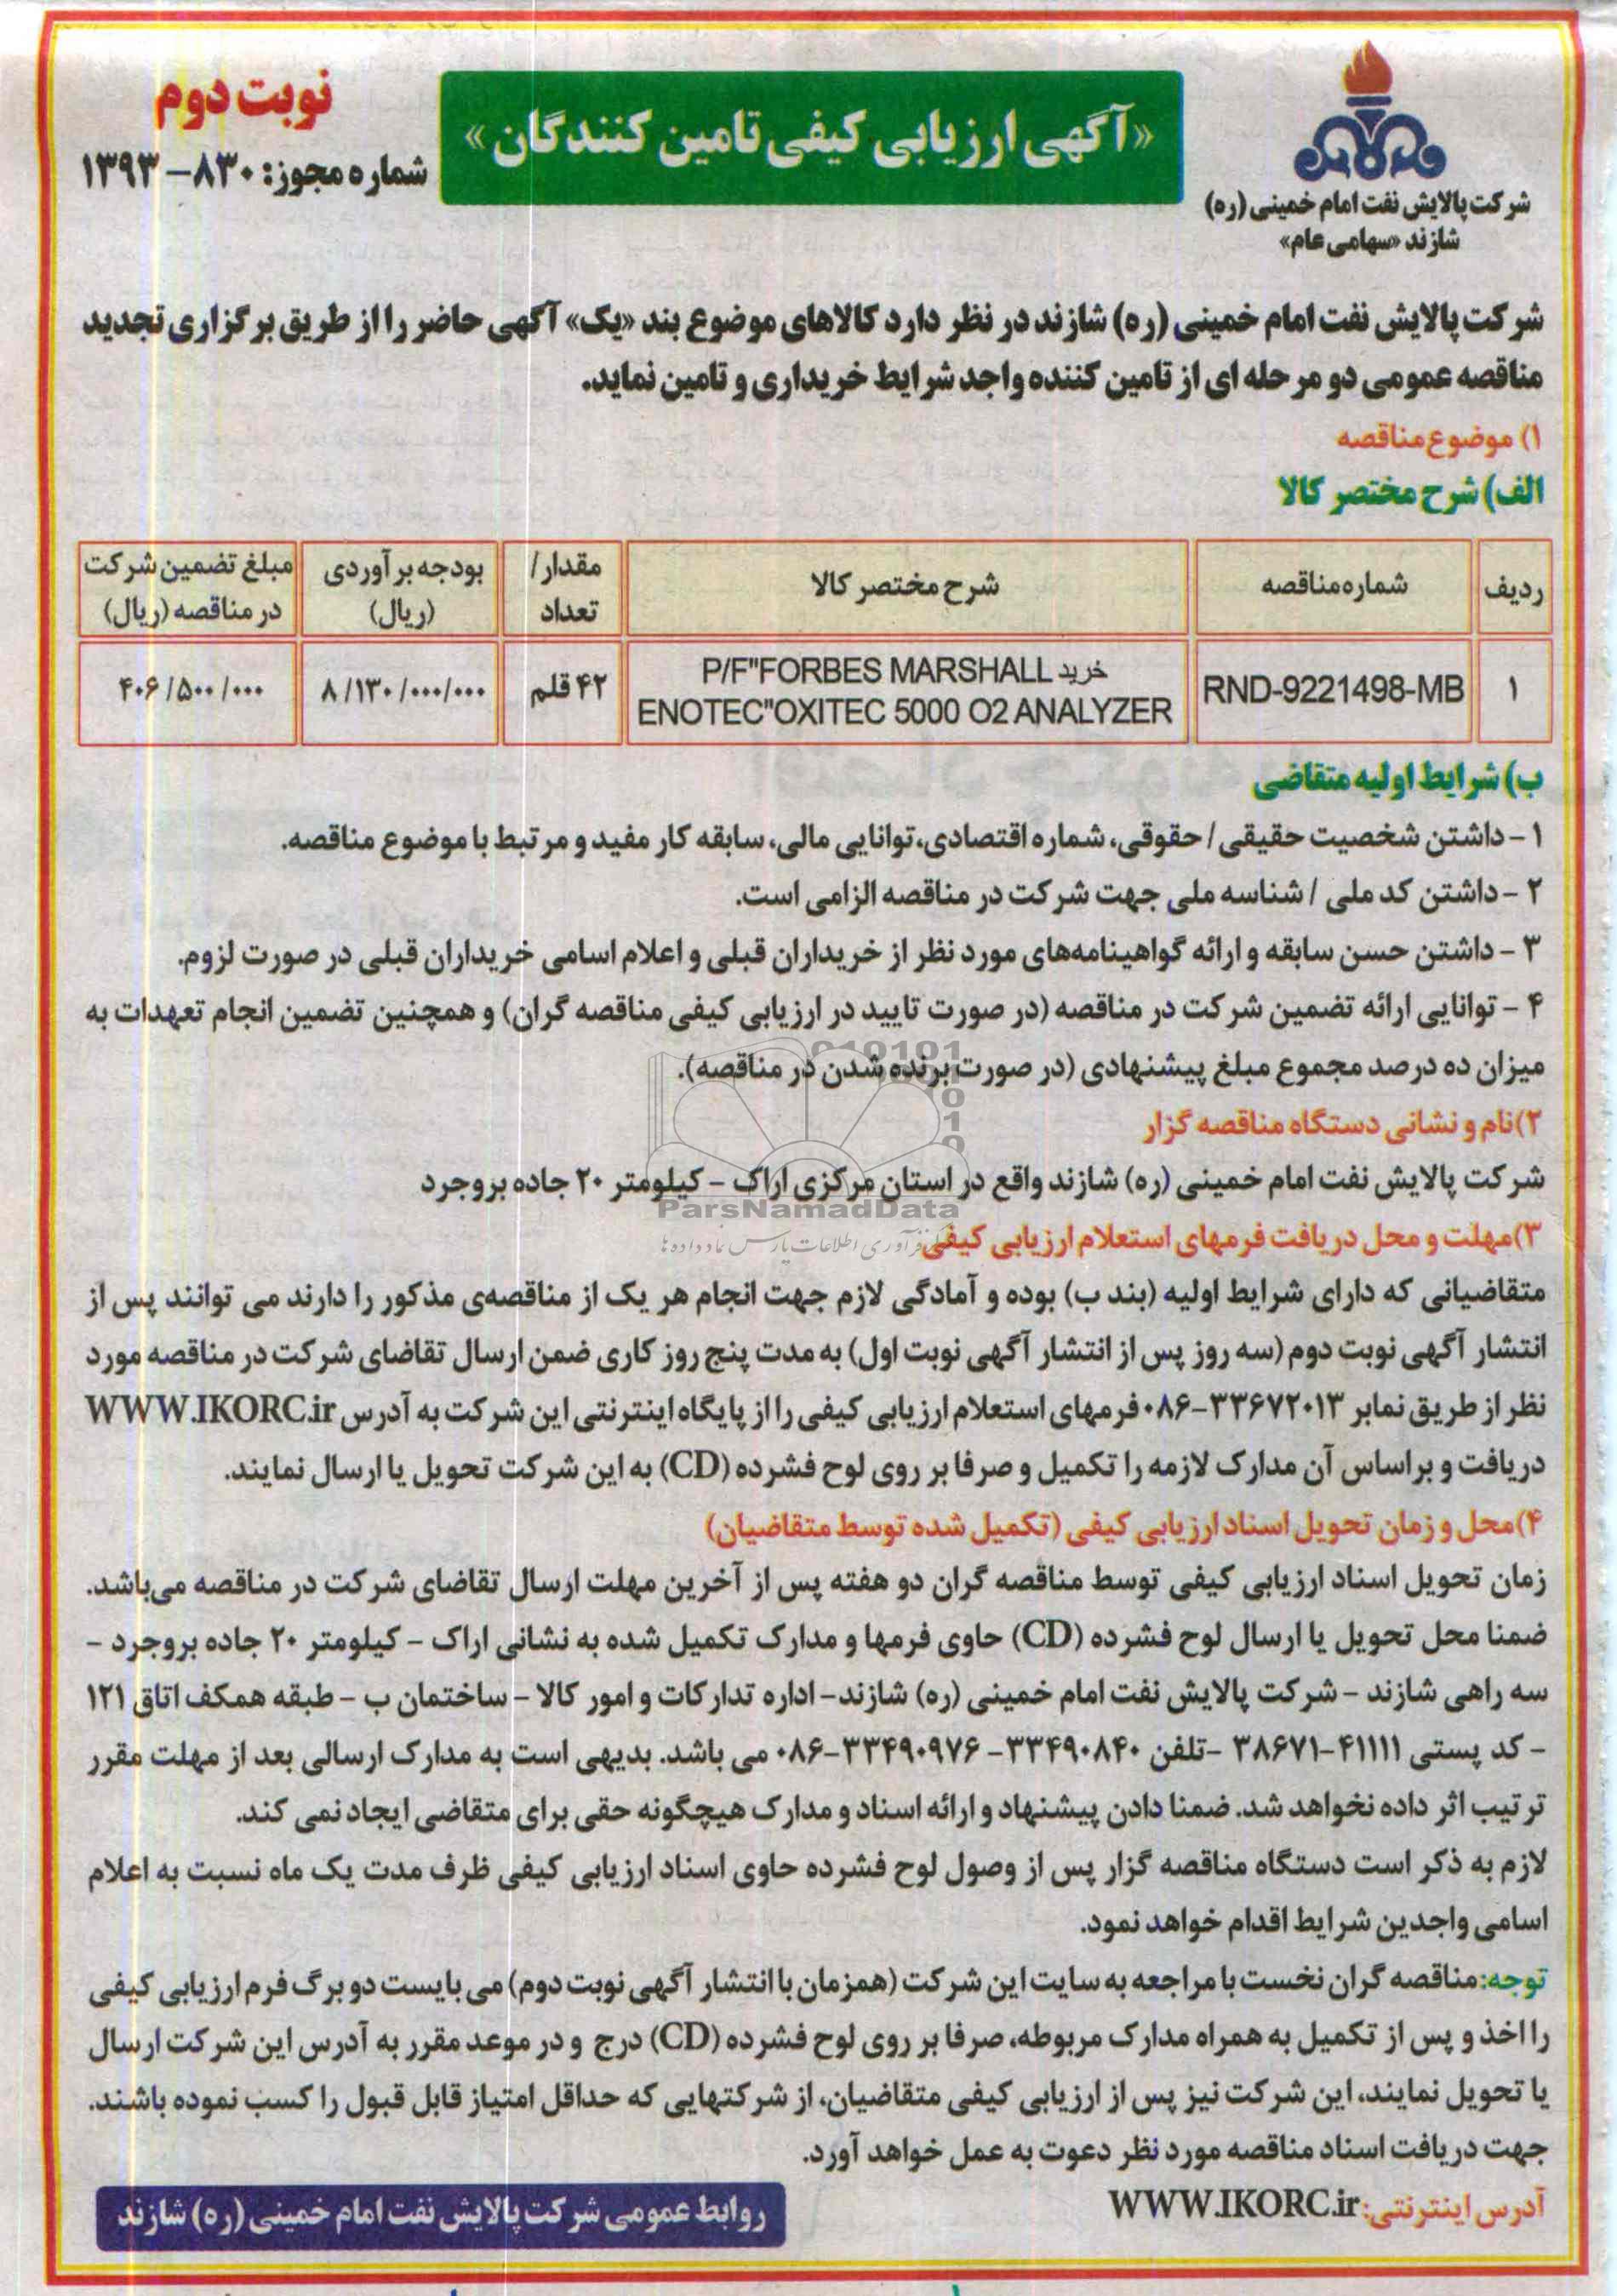 شرکت پالایش نفت امام خمینی (ره)
شازند «سهامی عام»
«آگهی ارزیابی کیفی تامین کنندگان»
نوبت دوم
شماره مجوز: ۸۳۰- ۱۳۹۳
شرکت پالایش نفت امام خمینی (ره) شازند در نظر دارد کالاهای موضوع بند «یک» آگهی حاضر را از طریق برگزاری تجدید
مناقصه عمومی دو مرحله ای از تامین کننده واجد شرایط خریداری و تامین نماید.
۱) موضوع مناقصه
الف) شرح مختصر کالا
ردیف
شماره مناقصه
شرح مختصر کالا
مقدار/
تعداد
بودجه برآوردی
(ریال)
مبلغ تضمین شرکت
در مناقصه (ریال)
۱
RND-9221498-MB
خرید P/F"FORBES MARSHALL
ENOTEC"OXITEC 5000 O2 ANALYZER
۴۲ قلم
۸/۱۳۰/۰۰۰/۰۰۰
۴۰۶/۵۰۰/۰۰۰
ب) شرایط اولیه متقاضی
۱ - داشتن شخصیت حقیقی / حقوقی، شماره اقتصادی، توانایی مالی، سابقه کار مفید و مرتبط با موضوع مناقصه.
۲ - داشتن کد ملی / شناسه ملی جهت شرکت در مناقصه الزامی است.
۳ - داشتن حسن سابقه و ارائه گواهینامه‌های مورد نظر از خریداران قبلی و اعلام اسامی خریداران قبلی در صورت لزوم.
۴ - توانایی ارائه تضمین شرکت در مناقصه (در صورت تایید در ارزیابی کیفی مناقصه گران) و همچنین تضمین انجام تعهدات به
میزان ده درصد مجموع مبلغ پیشنهادی (در صورت برنده شدن در مناقصه).
۲)نام و نشانی دستگاه مناقصه گزار
شرکت پالایش نفت امام خمینی (ره) شازند واقع در استان مرکزی اراک - کیلومتر ۲۰ جاده بروجرد
ParsNamadData
۳)مهلت و محل دریافت فرمهای استعلام ارزیابی کیفی
متقاضیانی که دارای شرایط اولیه (بند ب) بوده و آمادگی لازم جهت انجام هر یک از مناقصه‌ی مذکور را دارند می توانند پس از
انتشار آگهی نوبت دوم (سه روز پس از انتشار آگهی نوبت اول) به مدت پنج روز کاری ضمن ارسال تقاضای شرکت در مناقصه مورد
نظر از طریق نمابر ۳۳۶۷۲۰۱۳-۰۸۶ فرمهای استعلام ارزیابی کیفی را از پایگاه اینترنتی این شرکت به آدرس WWW.IKORC.ir
دریافت و براساس آن مدارک لازمه را تکمیل و صرفا بر روی لوح فشرده (CD) به این شرکت تحویل یا ارسال نمایند.
۴)محل و زمان تحویل اسناد ارزیابی کیفی (تکمیل شده توسط متقاضیان)
زمان تحویل اسناد ارزیابی کیفی توسط مناقصه گران دو هفته پس از آخرین مهلت ارسال تقاضای شرکت در مناقصه می‌باشد.
ضمنا محل تحویل یا ارسال لوح فشرده (CD) حاوی فرمها و مدارک تکمیل شده به نشانی اراک - کیلومتر ۲۰ جاده بروجرد -
سه راهی شازند - شرکت پالایش نفت امام خمینی (ره) شازند- اداره تدارکات و امور کالا - ساختمان ب - طبقه همکف اتاق ۱۲۱
- کد پستی ۴۱۱۱۱-۳۸۶۷۱ -تلفن ۳۳۴۹۰۸۴۰- ۳۳۴۹۰۹۷۶-۰۸۶ می باشد. بدیهی است به مدارک ارسالی بعد از مهلت مقرر
ترتیب اثر داده نخواهد شد. ضمنا دادن پیشنهاد و ارائه اسناد و مدارک هیچگونه حقی برای متقاضی ایجاد نمی کند.
لازم به ذکر است دستگاه مناقصه گزار پس از وصول لوح فشرده حاوی اسناد ارزیابی کیفی ظرف مدت یک ماه نسبت به اعلام
اسامی واجدین شرایط اقدام خواهد نمود.
توجه: مناقصه گران نخست با مراجعه به سایت این شرکت (همزمان با انتشار آگهی نوبت دوم) می بایست دو برگ فرم ارزیابی کیفی
را اخذ و پس از تکمیل به همراه مدارک مربوطه، صرفا بر روی لوح فشرده (CD) درج و در موعد مقرر به آدرس این شرکت ارسال
یا تحویل نمایند، این شرکت نیز پس از ارزیابی کیفی متقاضیان، از شرکتهایی که حداقل امتیاز قابل قبول را کسب نموده باشند.
جهت دریافت اسناد مناقصه مورد نظر دعوت به عمل خواهد آورد.
آدرس اینترنتی: WWW.IKORC.ir
روابط عمومی شرکت پالایش نفت امام خمینی (ره) شازند